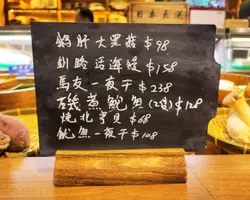 日本直送
鵝肝大黑菇$98
釧路活海螺$158
馬友一夜干$238
磯煮鮑魚(2隻)$128
燒北寄貝$68
魷魚一夜干$108